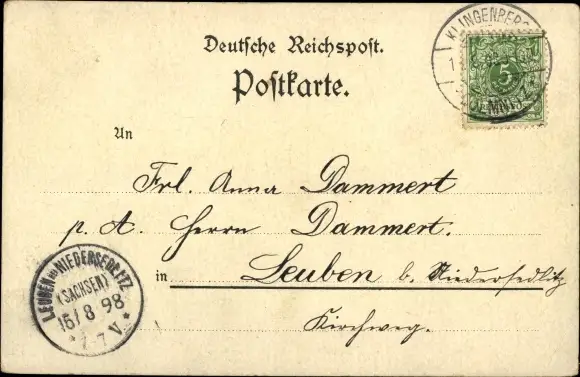 Deutsche Reichspost.
Postkarte.
KLINGENBERG
5
An
Frl. Anna Dammert
p. A. Herrn Dammert.
in Leuben b. Niedersedlitz
Kirchweg.
LEUBEN bei NIEDERSEDLITZ
(SACHSEN)
15/8 98
* 7-7 V. *